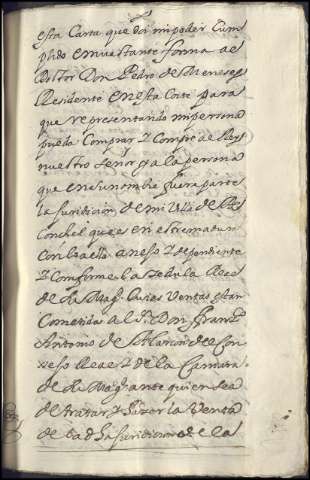 esta Carta que doi mi poder Cum
plido en vastante forma al
Dotor Don Pedro de Meneses
Residente en esta Corte para
que representando mi persona
pueda Comprar y Compre de Rey
nuestro Señor y a la persona
que en su nombre fuera parte
la Juridicion de mi Villa de
Conchel que es en estremadura
con lo a ella anejo y dependiente
y Conforme la Zedula Real
de Su Magd Cuias Ventas estan
Cometidas al Sr Don Franco
Antonio de Alarcon del Con
sejo Real y de la Camara
de Su Magd ante quien se a
de tratar y hazer la Venta
de la dha Juridicion de la